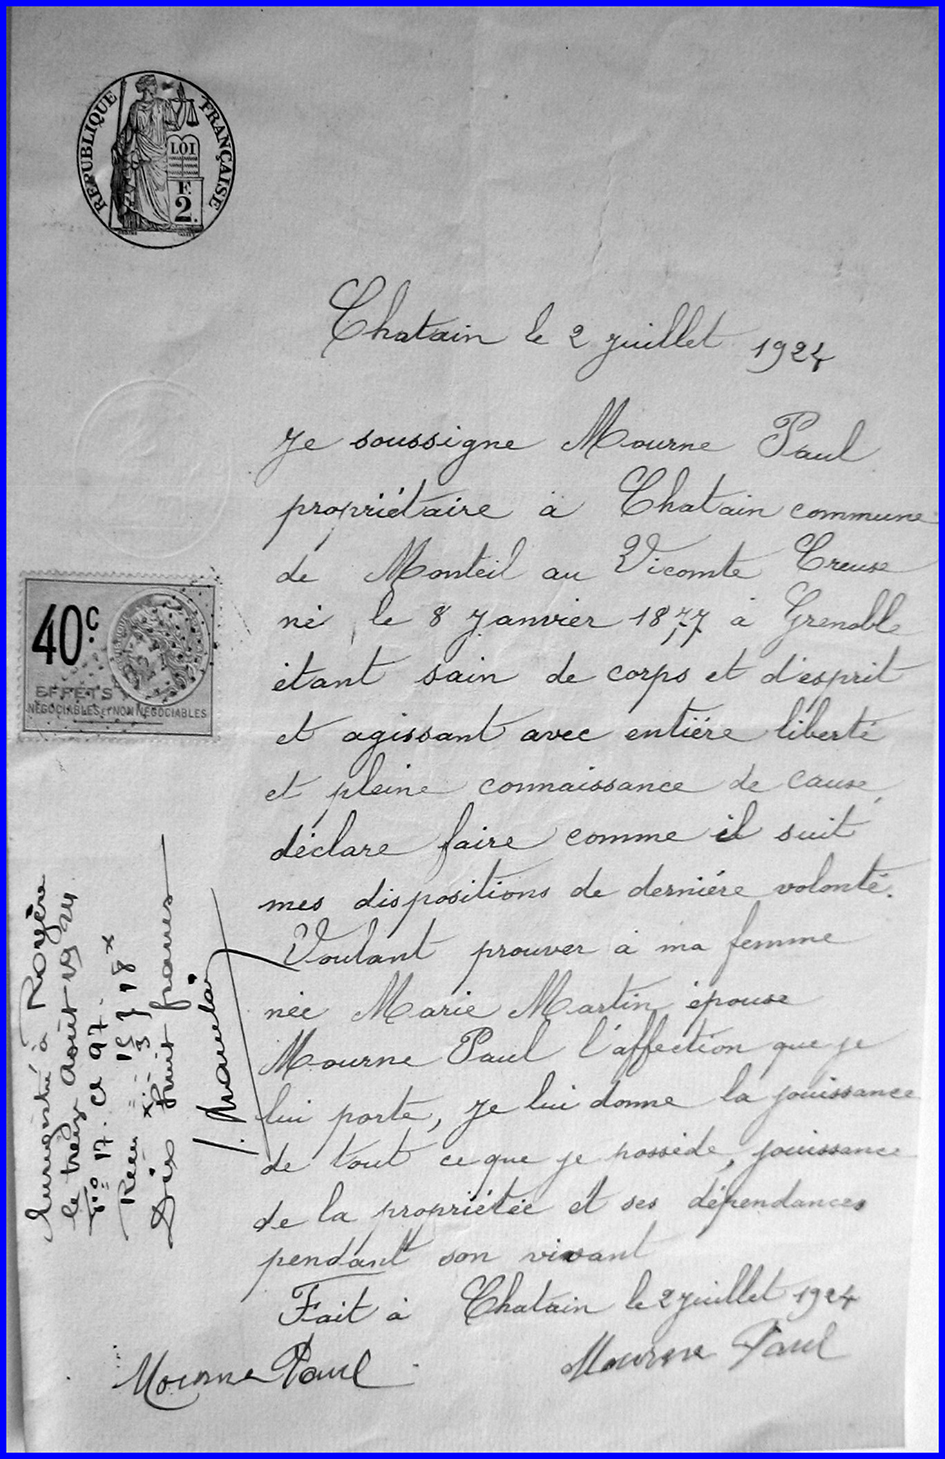 RÉPUBLIQUE FRANÇAISE
LOI
F.
2.
Chatain le 2 juillet 1924
Je soussigne Mourne Paul
propriétaire à Chatain commune
de Monteil au Vicomte Creuse
né le 8 Janvier 1877 à Grenoble
étant sain de corps et d'esprit
et agissant avec entiére liberté
et pleine connaissance de cause
déclare faire comme il suit
mes dispositions de derniére volonté.
Voulant prouver à ma femme
née Marie Martin épouse
Mourne Paul l'affection que je
lui porte, je lui donne la jouissance
de tout ce que je posséde, jouissance
de la propriétée et ses dépendances
pendant son vivant
Fait à Chatain le 2 juillet 1924
Mourne Paul
Mourne Paul
40c.
EFFETS
NÉGOCIABLES ET NON NÉGOCIABLES
Enregistré à Royère
le treize Août 1924
Fo 17. Ce 97.
Reçu 15 } 18
3
Dix huit francs